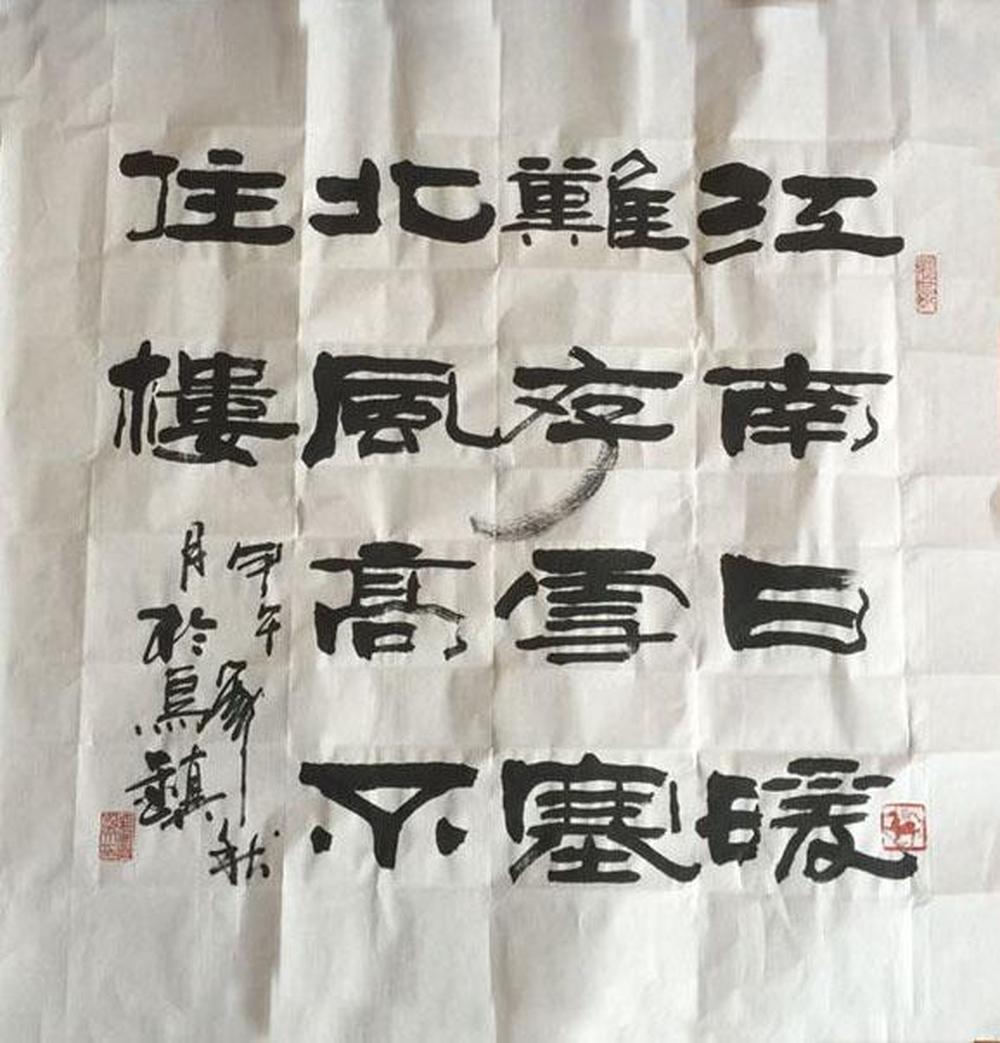 江南日暖
難存雪塞
北風高不
住樓
甲午秋
月於烏鎮